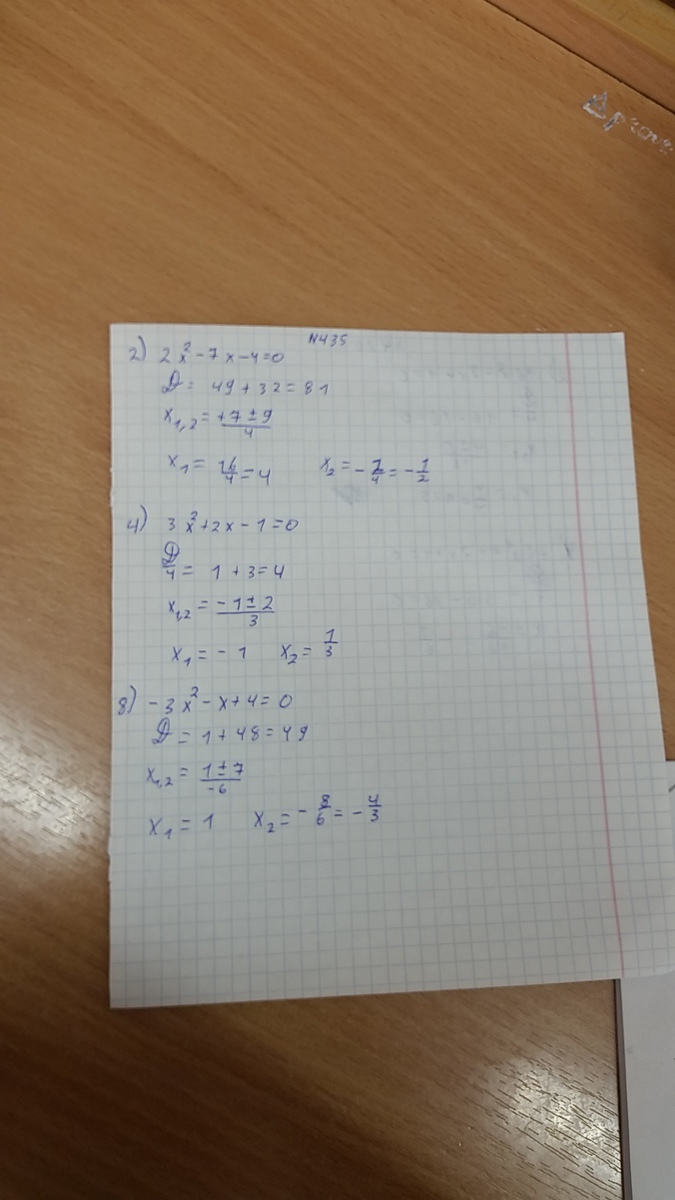 N435
2) 2x² - 7x - 4 = 0
D = 49 + 32 = 81
x₁,₂ = +7 ± 9 / 4
x₁ = 16/4 = 4 x₂ = - 2/4 = - 1/2
4) 3x² + 2x - 1 = 0
D/4 = 1 + 3 = 4
x₁,₂ = -1 ± 2 / 3
x₁ = - 1 x₂ = 1/3
8) - 3x² - x + 4 = 0
D = 1 + 48 = 49
x₁,₂ = 1 ± 7 / -6
x₁ = 1 x₂ = - 8/6 = - 4/3